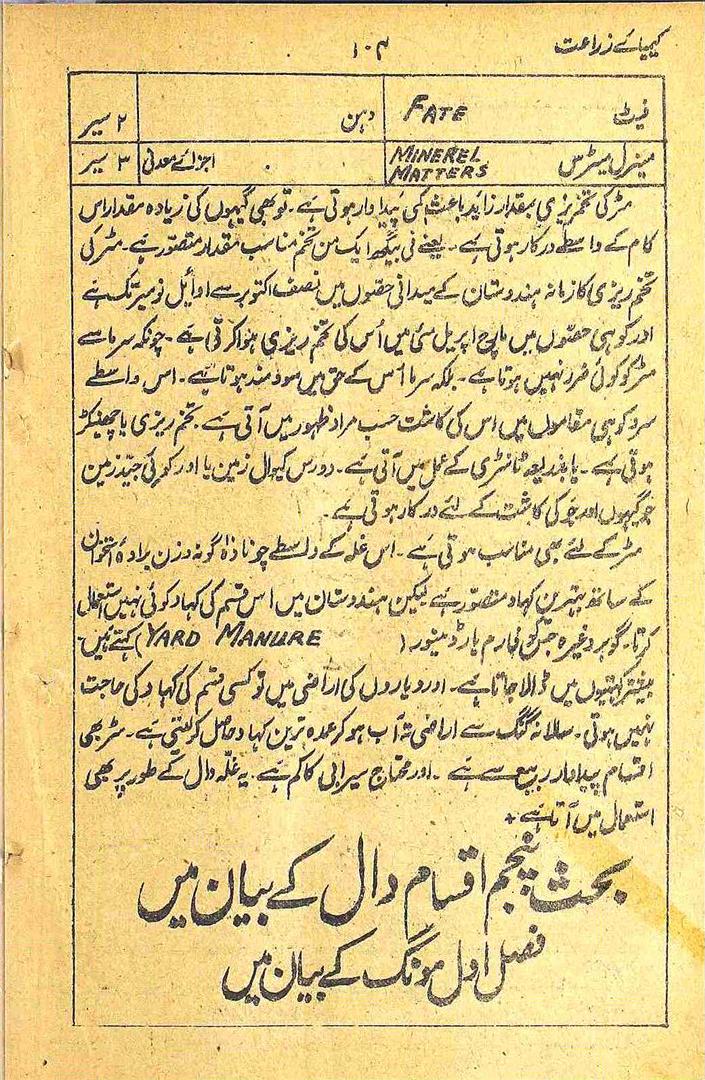 کیمیائے زراعت ۱۰۴
فیٹ FATE دہن ۲ سیر
مینرل میٹرس MINEREL MATTERS اجزائے معدنی ۳ سیر
مٹر کی تخمریزی بمقدار زائد باعث کمی پیداوار ہوتی ہے۔ تو بھی گیہوں کی زیادہ مقدار اس
کام کے واسطے درکار ہوتی ہے۔ یعنے فی بیگھہ ایک من تخم مناسب مقدار متصور ہے۔ مٹر کی
تخم ریزی کا زمانہ ہندوستان کے میدانی حصوں میں نصف اکتوبر سے اوائل نومبر تک ہے
اور کوہی حصوں میں مارچ اپریل مئی میں اُس کی تخم ریزی ہوا کرتی ہے۔ چونکہ سرما سے
مٹر کو کوئی ضرر نہیں ہوتا ہے۔ بلکہ سرما اُس کے حق میں سودمند ہوتا ہے۔ اس واسطے
سرد کوہی مقاموں میں اس کی کاشت حسب مراد ظہور میں آتی ہے۔ تخم ریزی یا چھینکڑ
ہوتی ہے۔ یا بذریعہ ٹانٹری کے عمل میں آتی ہے۔ دورس کیوال زمین یا اور کوئی جیّد زمین
جو گیہوں اور جَو کی کاشت کے لئے درکار ہوتی ہے۔
مٹر کے لئے بھی مناسب ہوتی ہے۔ اس غلہ کے واسطے چونا دہ گونہ وزن برادۂ استخوان
کے ساتھ بہترین کہاد متصور ہے لیکن ہندوستان میں اس قسم کی کہاد کوئی نہیں استعمال
کرتا۔ گوبر وغیرہ جس کو فارم یارڈ مینور (YARD MANURE) کہتے ہیں۔
بیشتر کہیتوں میں ڈالا جاتا ہے۔ اور دیاروں کی اراضی میں تو کسی قسم کی کہاد کی حاجت
نہیں ہوتی۔ سالانہ گنگ سے اراضی تہ آب ہو کر عمدہ ترین کہاد حاصل کر لیتی ہے۔ مٹر بھی
اقسام پیداوار ربیع سے ہے۔ اور محتاج سیرابی کا کم ہے۔ یہ غلّہ دال کے طور پر بھی
استعمال میں آتا ہے +
بحث پنجم اقسام دال کے بیان میں
فصل اول مونگ کے بیان میں